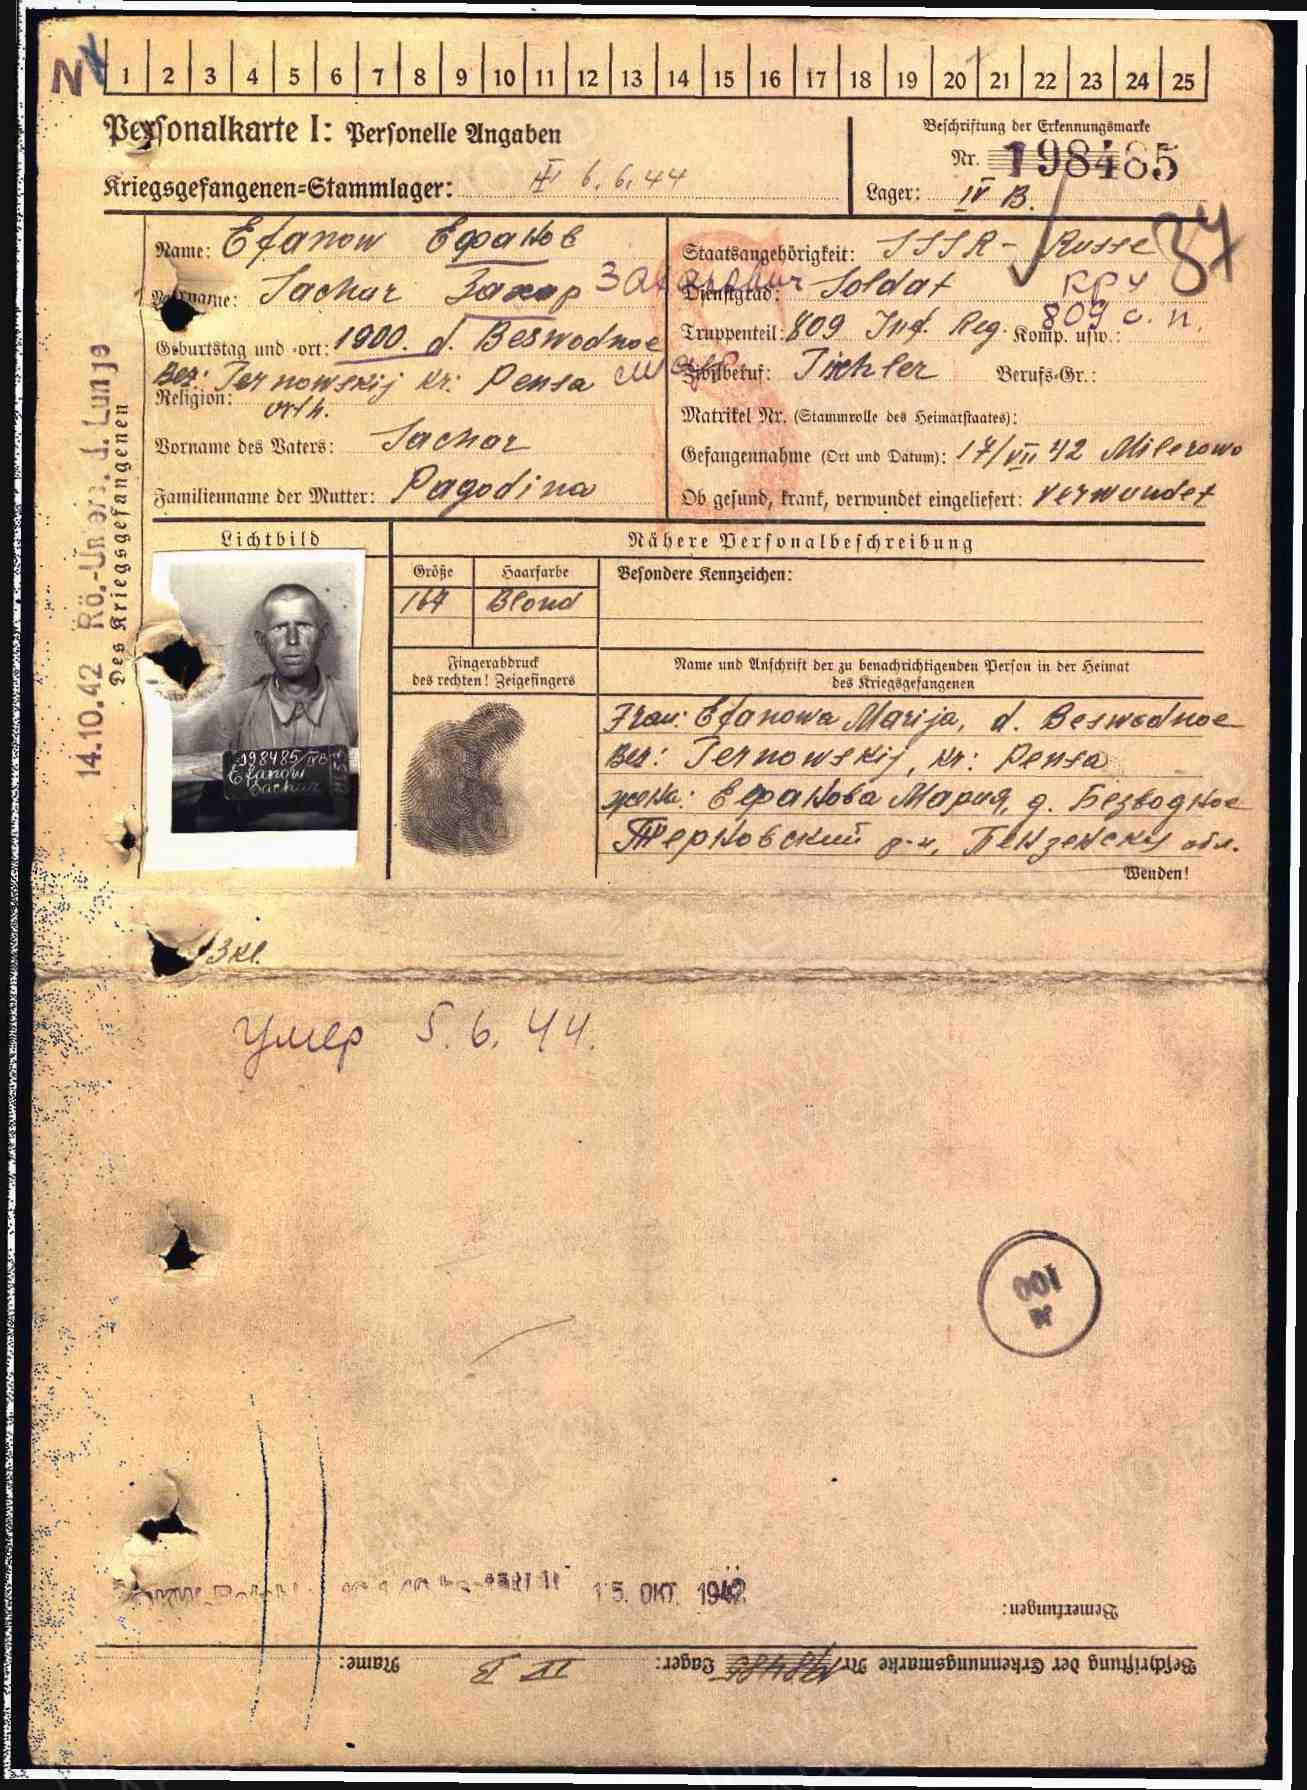 N
1 2 3 4 5 6 7 8 9 10 11 12 13 14 15 16 17 18 19 20 21 22 23 24 25
Personalkarte I: Personelle Angaben
Beschriftung der Erkennungsmarke
Nr. 198485
Kriegsgefangenen=Stammlager: 6.6.44
Lager: IV B.
37
Name: Efanow Ефанов
Staatsangehörigkeit: SSSR - Russe
Vorname: Sachar Захар Захарович
Dienstgrad: Soldat
Truppenteil: 809 Inf. Reg. Komp. usw.: 809 с.п.
Geburtstag und -ort: 1900. d. Beswodnoe
Bez: Ternowskij Kr: Pensa
Zivilberuf: Tischler Berufs-Gr.:
Religion: orth.
Matrikel Nr. (Stammrolle des Heimatstaates):
Vorname des Vaters: Sachar
Gefangennahme (Ort und Datum): 17/VII 42 Milerowo
Familienname der Mutter: Pagodina
Ob gesund, krank, verwundet eingeliefert: verwundet
14.10.42 Rö.-
Des Kriegsgefangenen
Lichtbild
Nähere Personalbeschreibung
Größe Haarfarbe Besondere Kennzeichen:
167 Blond
198485/IVB
Efanow
Sachar
Fingerabdruck
des rechten! Zeigefingers
Name und Anschrift der zu benachrichtigenden Person in der Heimat
des Kriegsgefangenen
Frau: Efanowa Marija, d. Beswodnoe
Bez: Ternowskij, Kr: Pensa
жена: Ефанова Мария, д. Безводное
Терновский р-н, Пензенску обл.
Wenden!
3 Kl.
Умер 5.6.44.
100
15. OKT. 1942
Bemerkungen:
Beschriftung der Erkennungsmarke Nr. 198485 Lager: IV B Name: